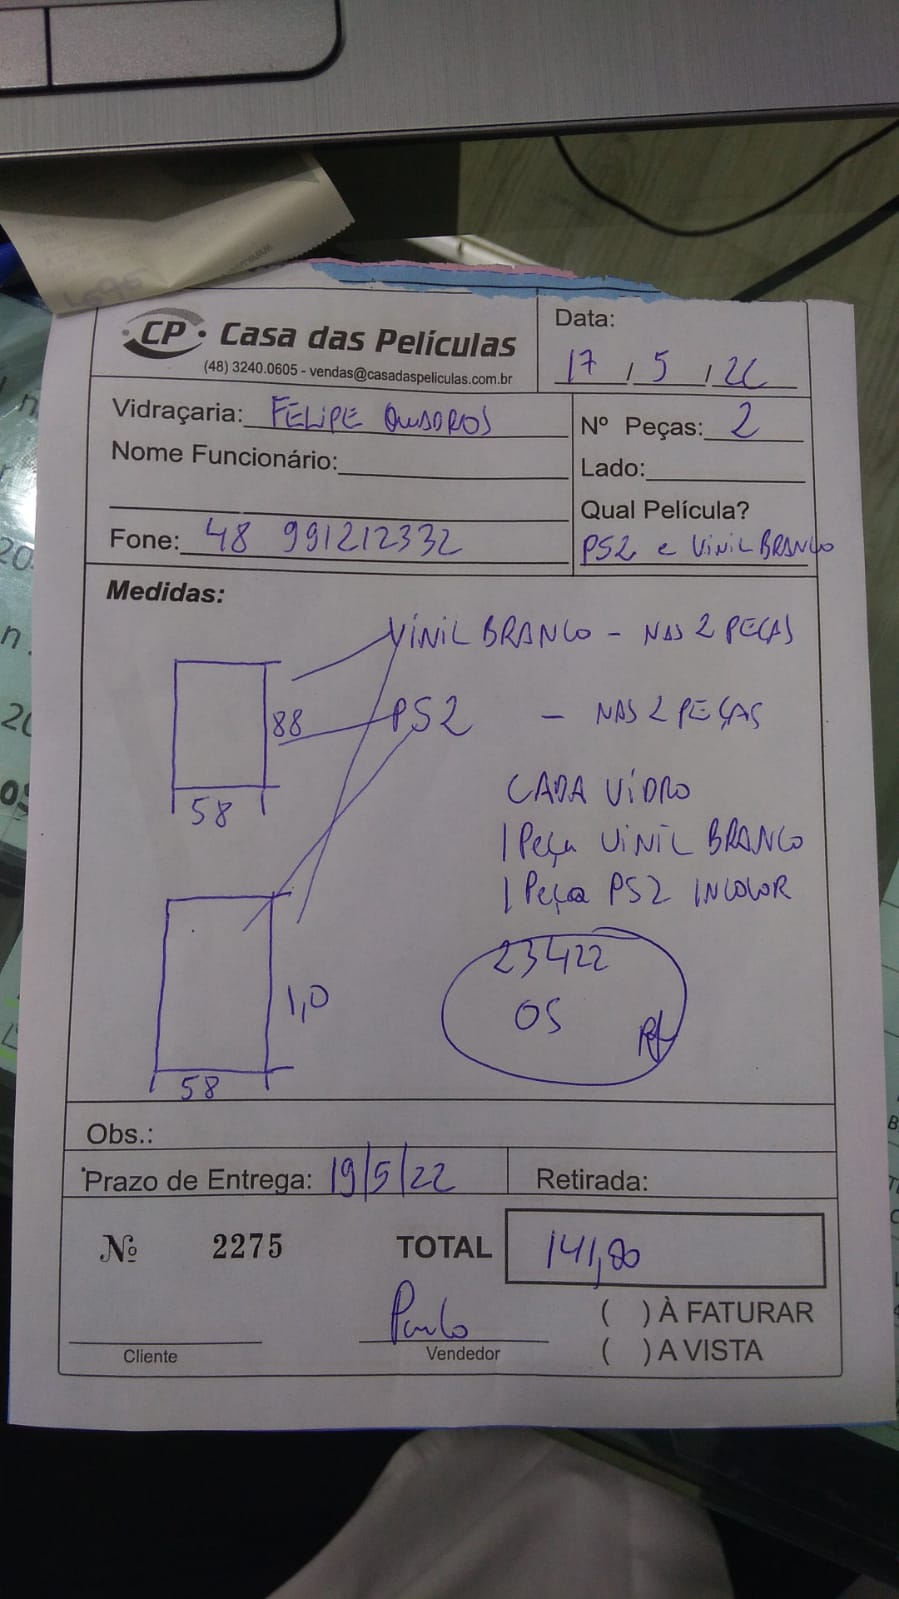 CP Casa das Películas
(48) 3240.0605 - vendas@casadaspeliculas.com.br
Data:
17 / 5 / 22
Vidraçaria: FELIPE QUADROS
Nº Peças: 2
Nome Funcionário:
Lado:
Qual Película?
Fone: 48 991212332
PS2 e VINIL BRANCO
Medidas:
VINIL BRANCO - NAS 2 PEÇAS
88
PS2 - NAS 2 PEÇAS
58
CADA VIDRO
1 Peça VINIL BRANCO
1 Peça PS2 INCOLOR
23422
OS
1,0
58
Obs.:
Prazo de Entrega: 19/5/22
Retirada:
Nº 2275
TOTAL 141,80
Paulo
( ) À FATURAR
Cliente
Vendedor
( ) A VISTA